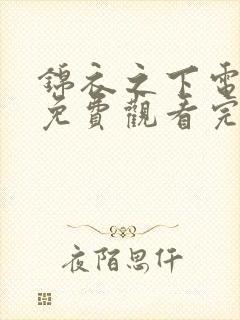 錦衣之下電
免費觀看完
夜陌思仟